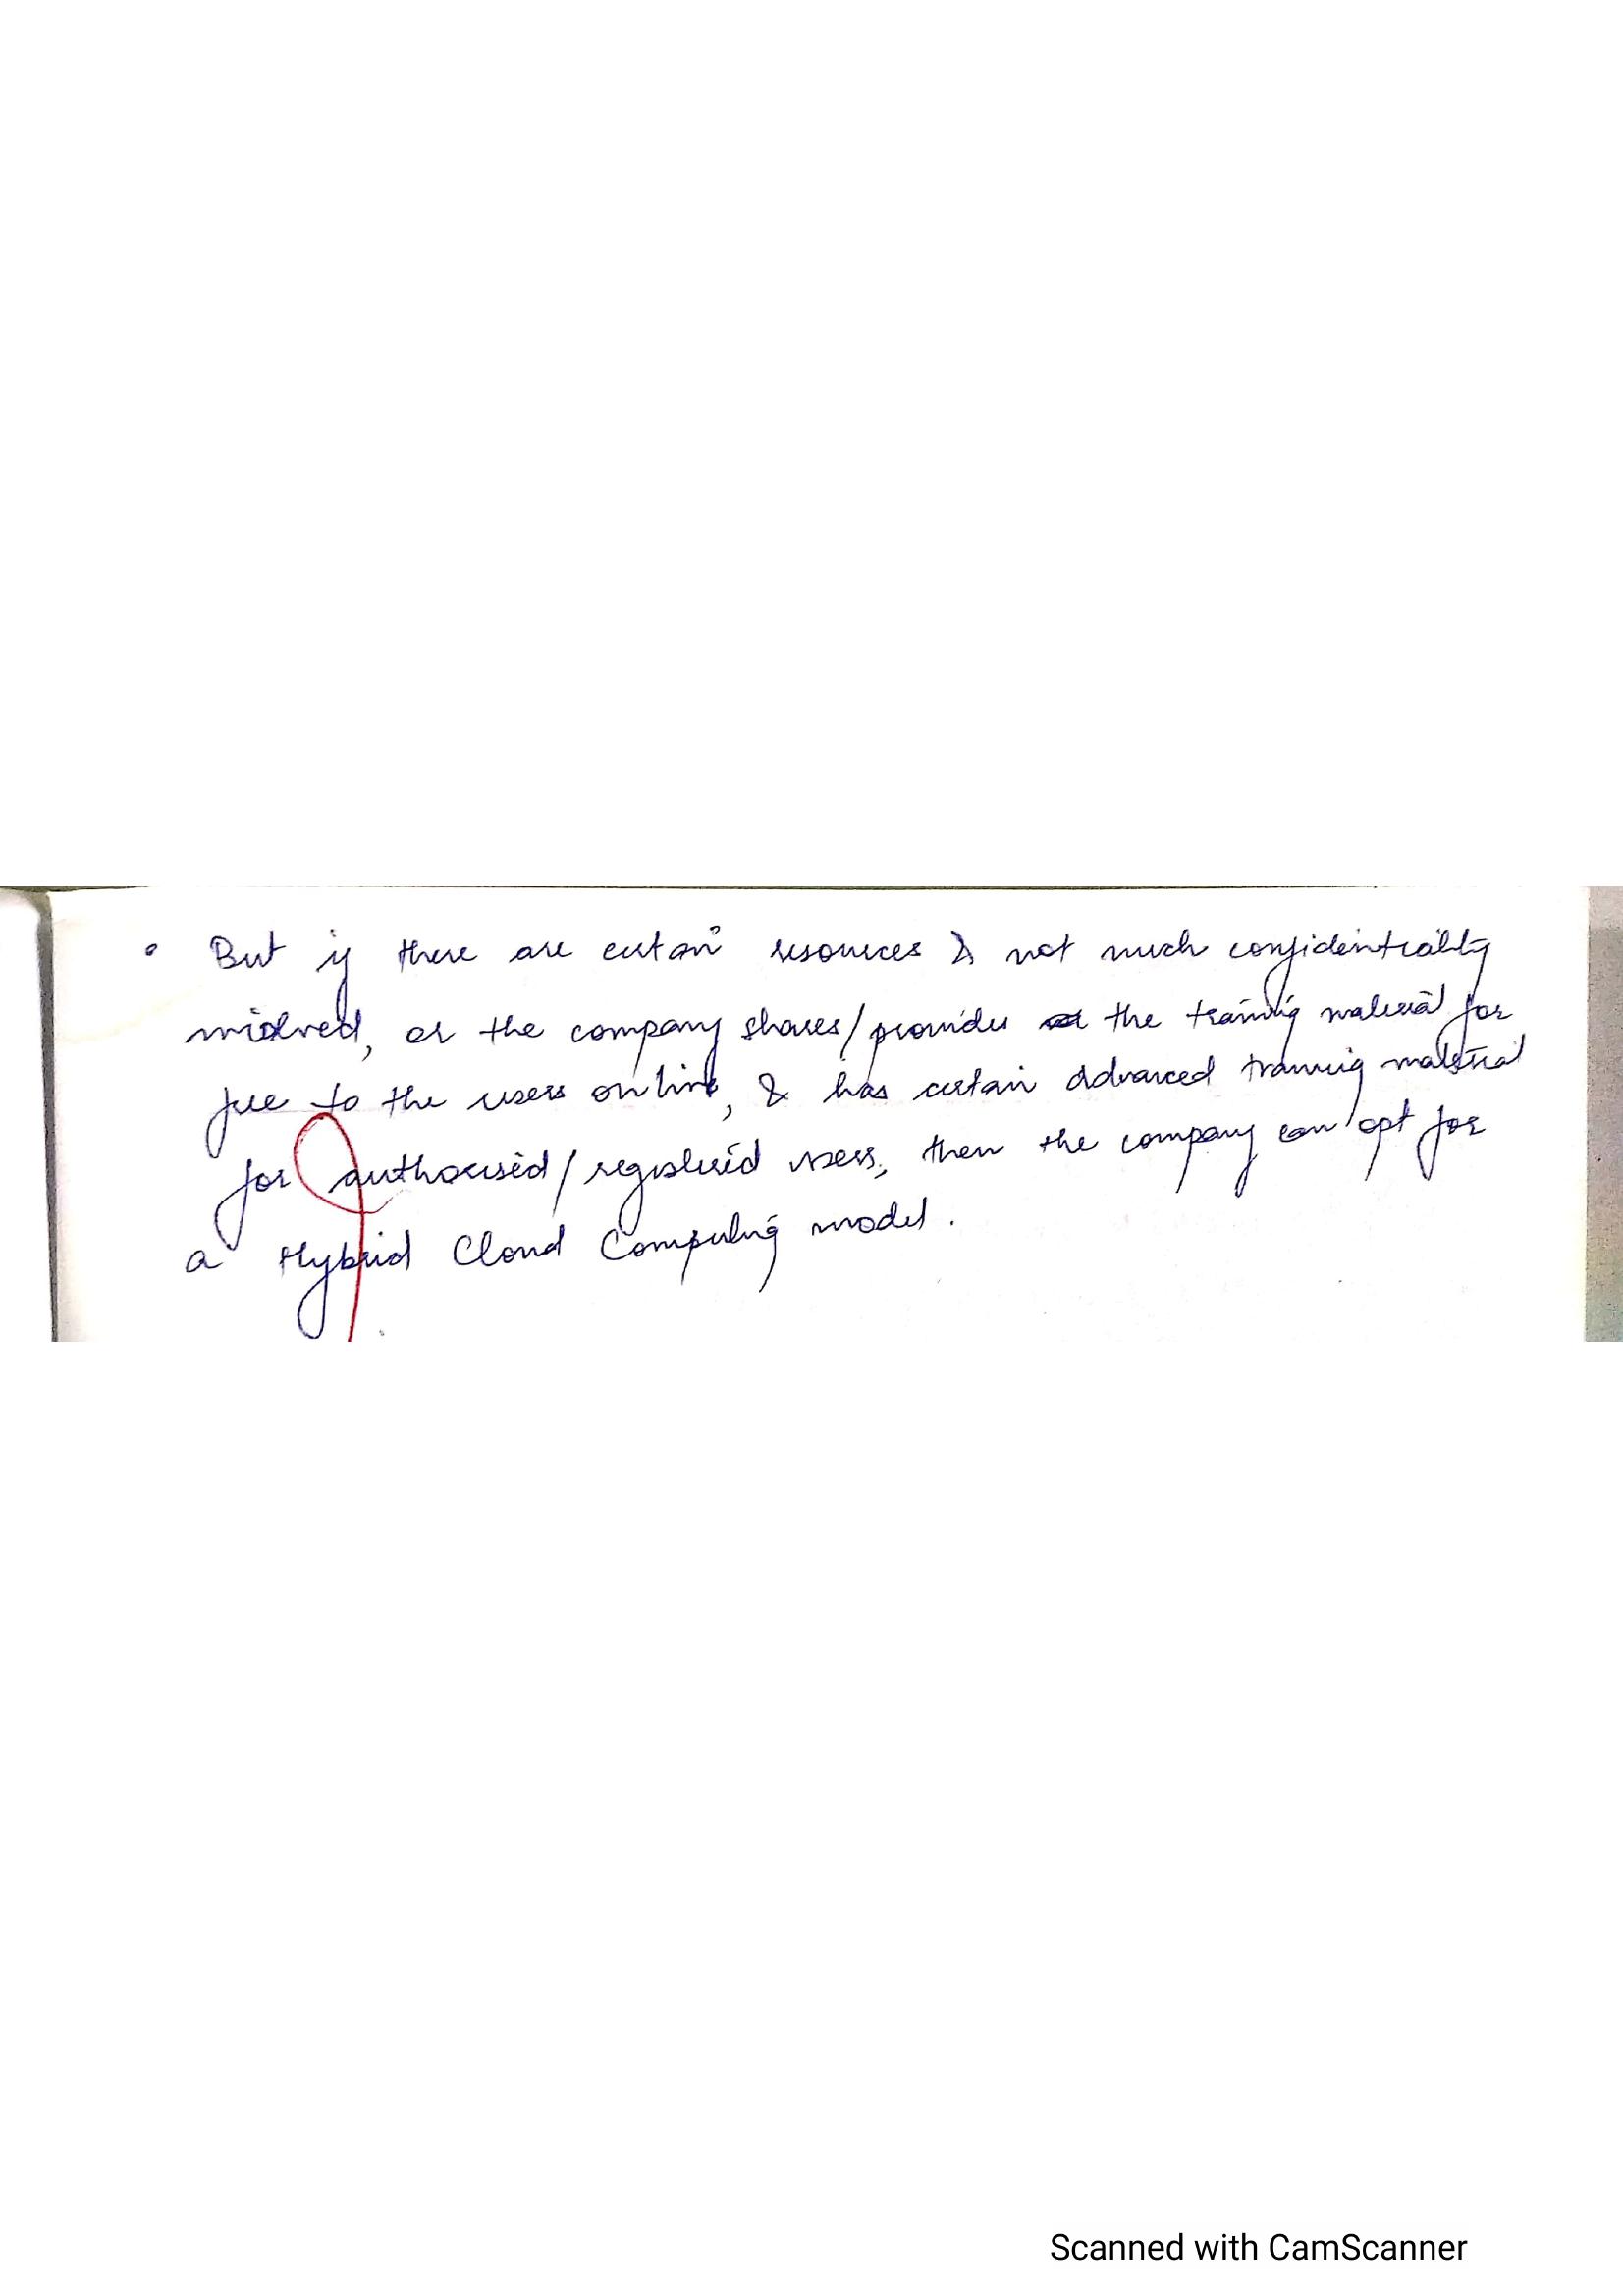 • But if there are certain resources & not much confidentiality
involved, or the company shares/provides the training material for
free to the users online, & has certain advanced training material
for authorised/registered users, then the company can opt for
a Hybrid Cloud Computing model.
Scanned with CamScanner